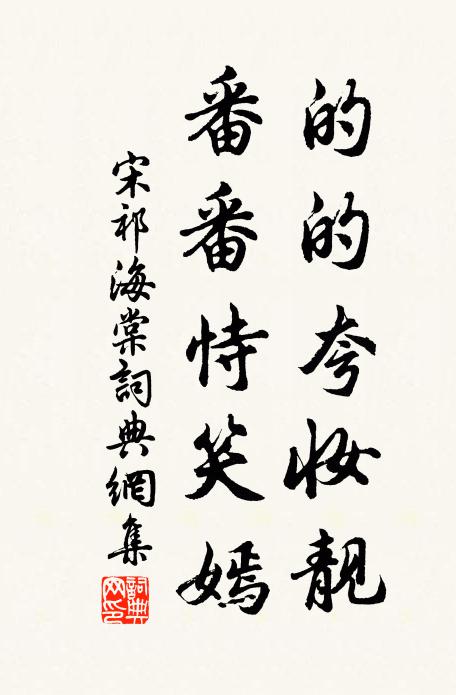 的的夸妆靓
番番恃笑嫣
宋祁海棠詞典網集
詞典网印